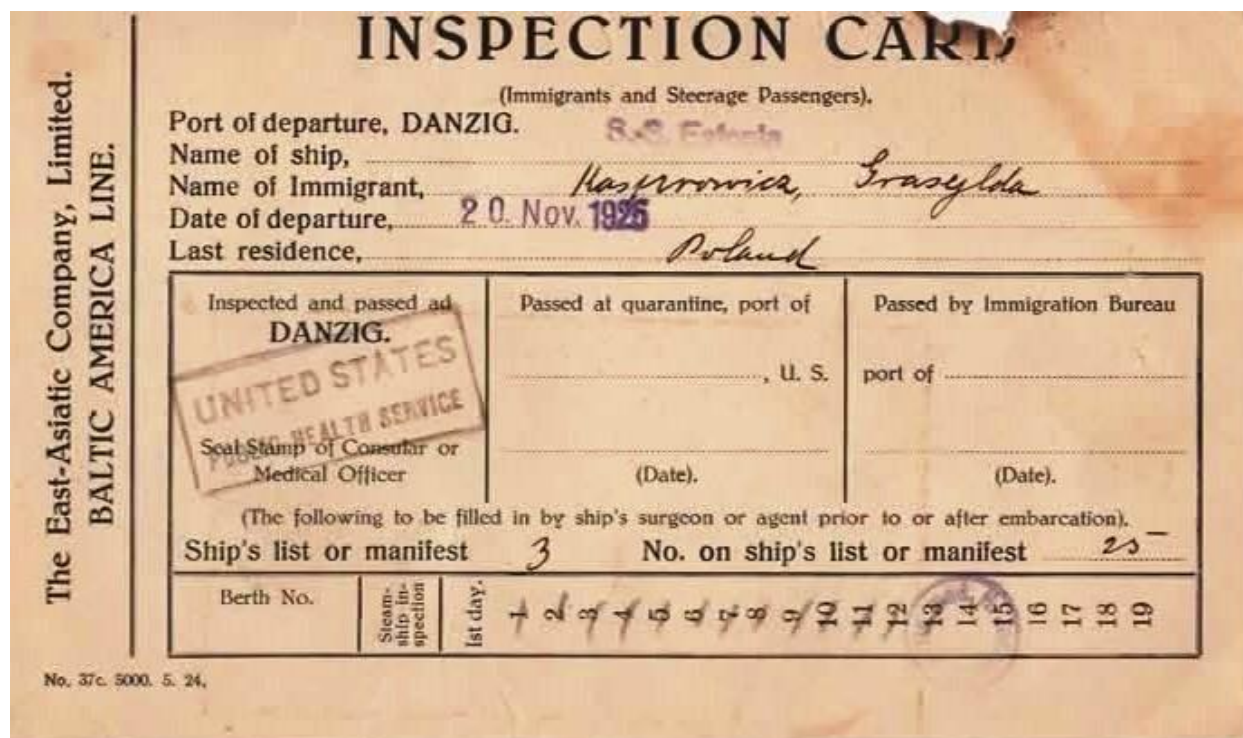 The East-Asiatic Company, Limited.
BALTIC AMERICA LINE.
INSPECTION CARD
(Immigrants and Steerage Passengers).
Port of departure, DANZIG.
Name of ship, S.S. Estonia
Name of Immigrant, Grasylda
Date of departure, 20. Nov. 1925
Last residence, Poland
Inspected and passed ad
DANZIG.
UNITED STATES
PUBLIC HEALTH SERVICE
Seal Stamp of Consular or
Medical Officer
Passed at quarantine, port of
, U. S.
(Date).
Passed by Immigration Bureau
port of
(Date).
(The following to be filled in by ship's surgeon or agent prior to or after embarcation).
Ship's list or manifest 3 No. on ship's list or manifest 25
Berth No.
Steam-
ship in-
spection
1st day.
1 2 3 4 5 6 7 8 9 10 11 12 13 14 15 16 17 18 19
No. 37c. 5000. 5. 24.